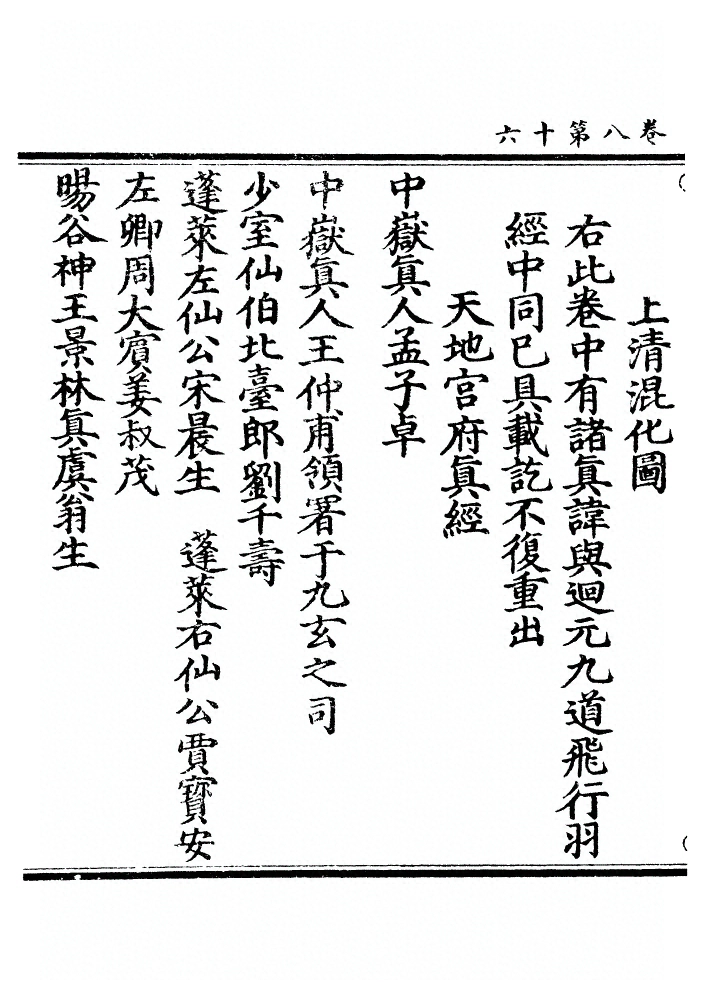 六十第八卷
上清混化圖
右此卷中有諸眞諱與迴元九道飛行羽
經中同已具載訖不復重出
天地宮府眞經
中嶽眞人孟子卓
中嶽眞人王仲甫領署于九玄之司
少室仙伯北臺郎劉千壽
蓬萊左仙公宋晨生　蓬萊右仙公賈寶安
左卿周大賓姜叔茂
暘谷神王景林眞虞翁生